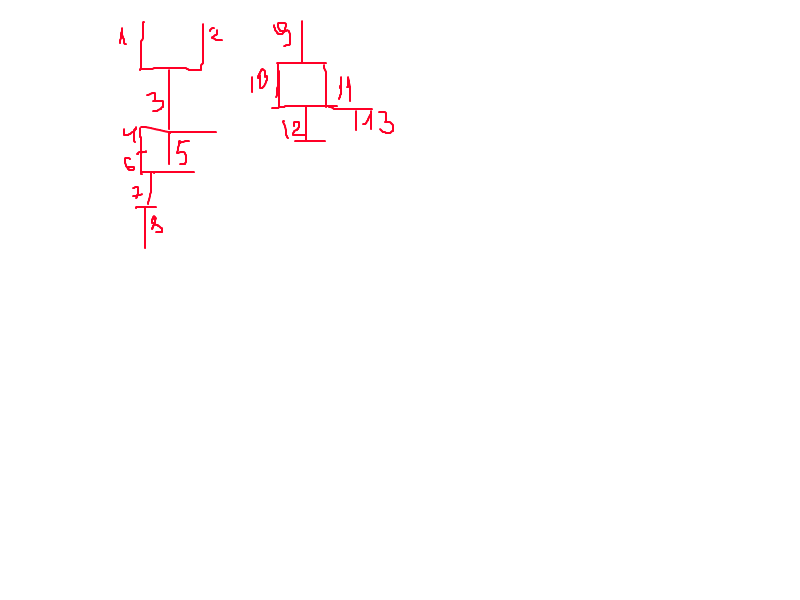 1 2
3
4
5
6
7
8
9
10 11
12 13